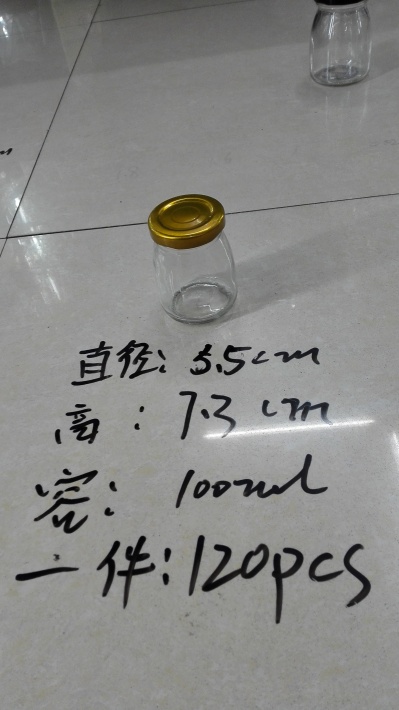 直径: 5.5cm
高: 7.3cm
容: 100ml
一件: 120pcs